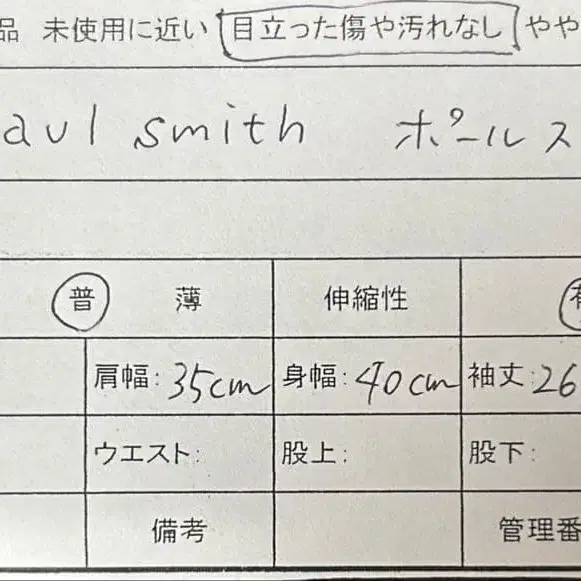 品 未使用に近い 目立った傷や汚れなし やや
aul smith ポールス
普 薄 伸縮性 有
肩幅: 35cm 身幅: 40cm 袖丈: 26
ウエスト: 股上: 股下:
備考 管理番